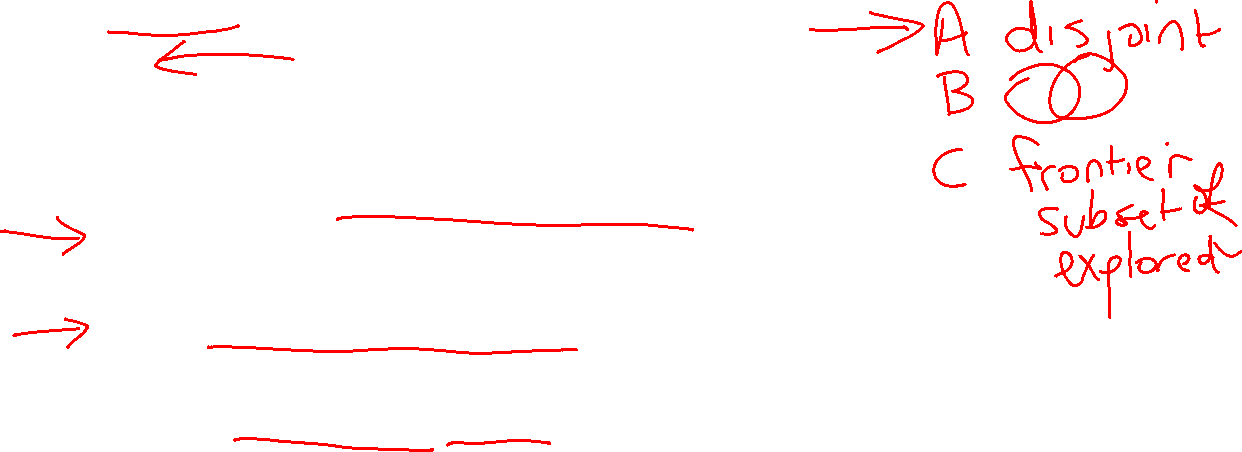 A disjoint
B
C frontier
subset of
explored